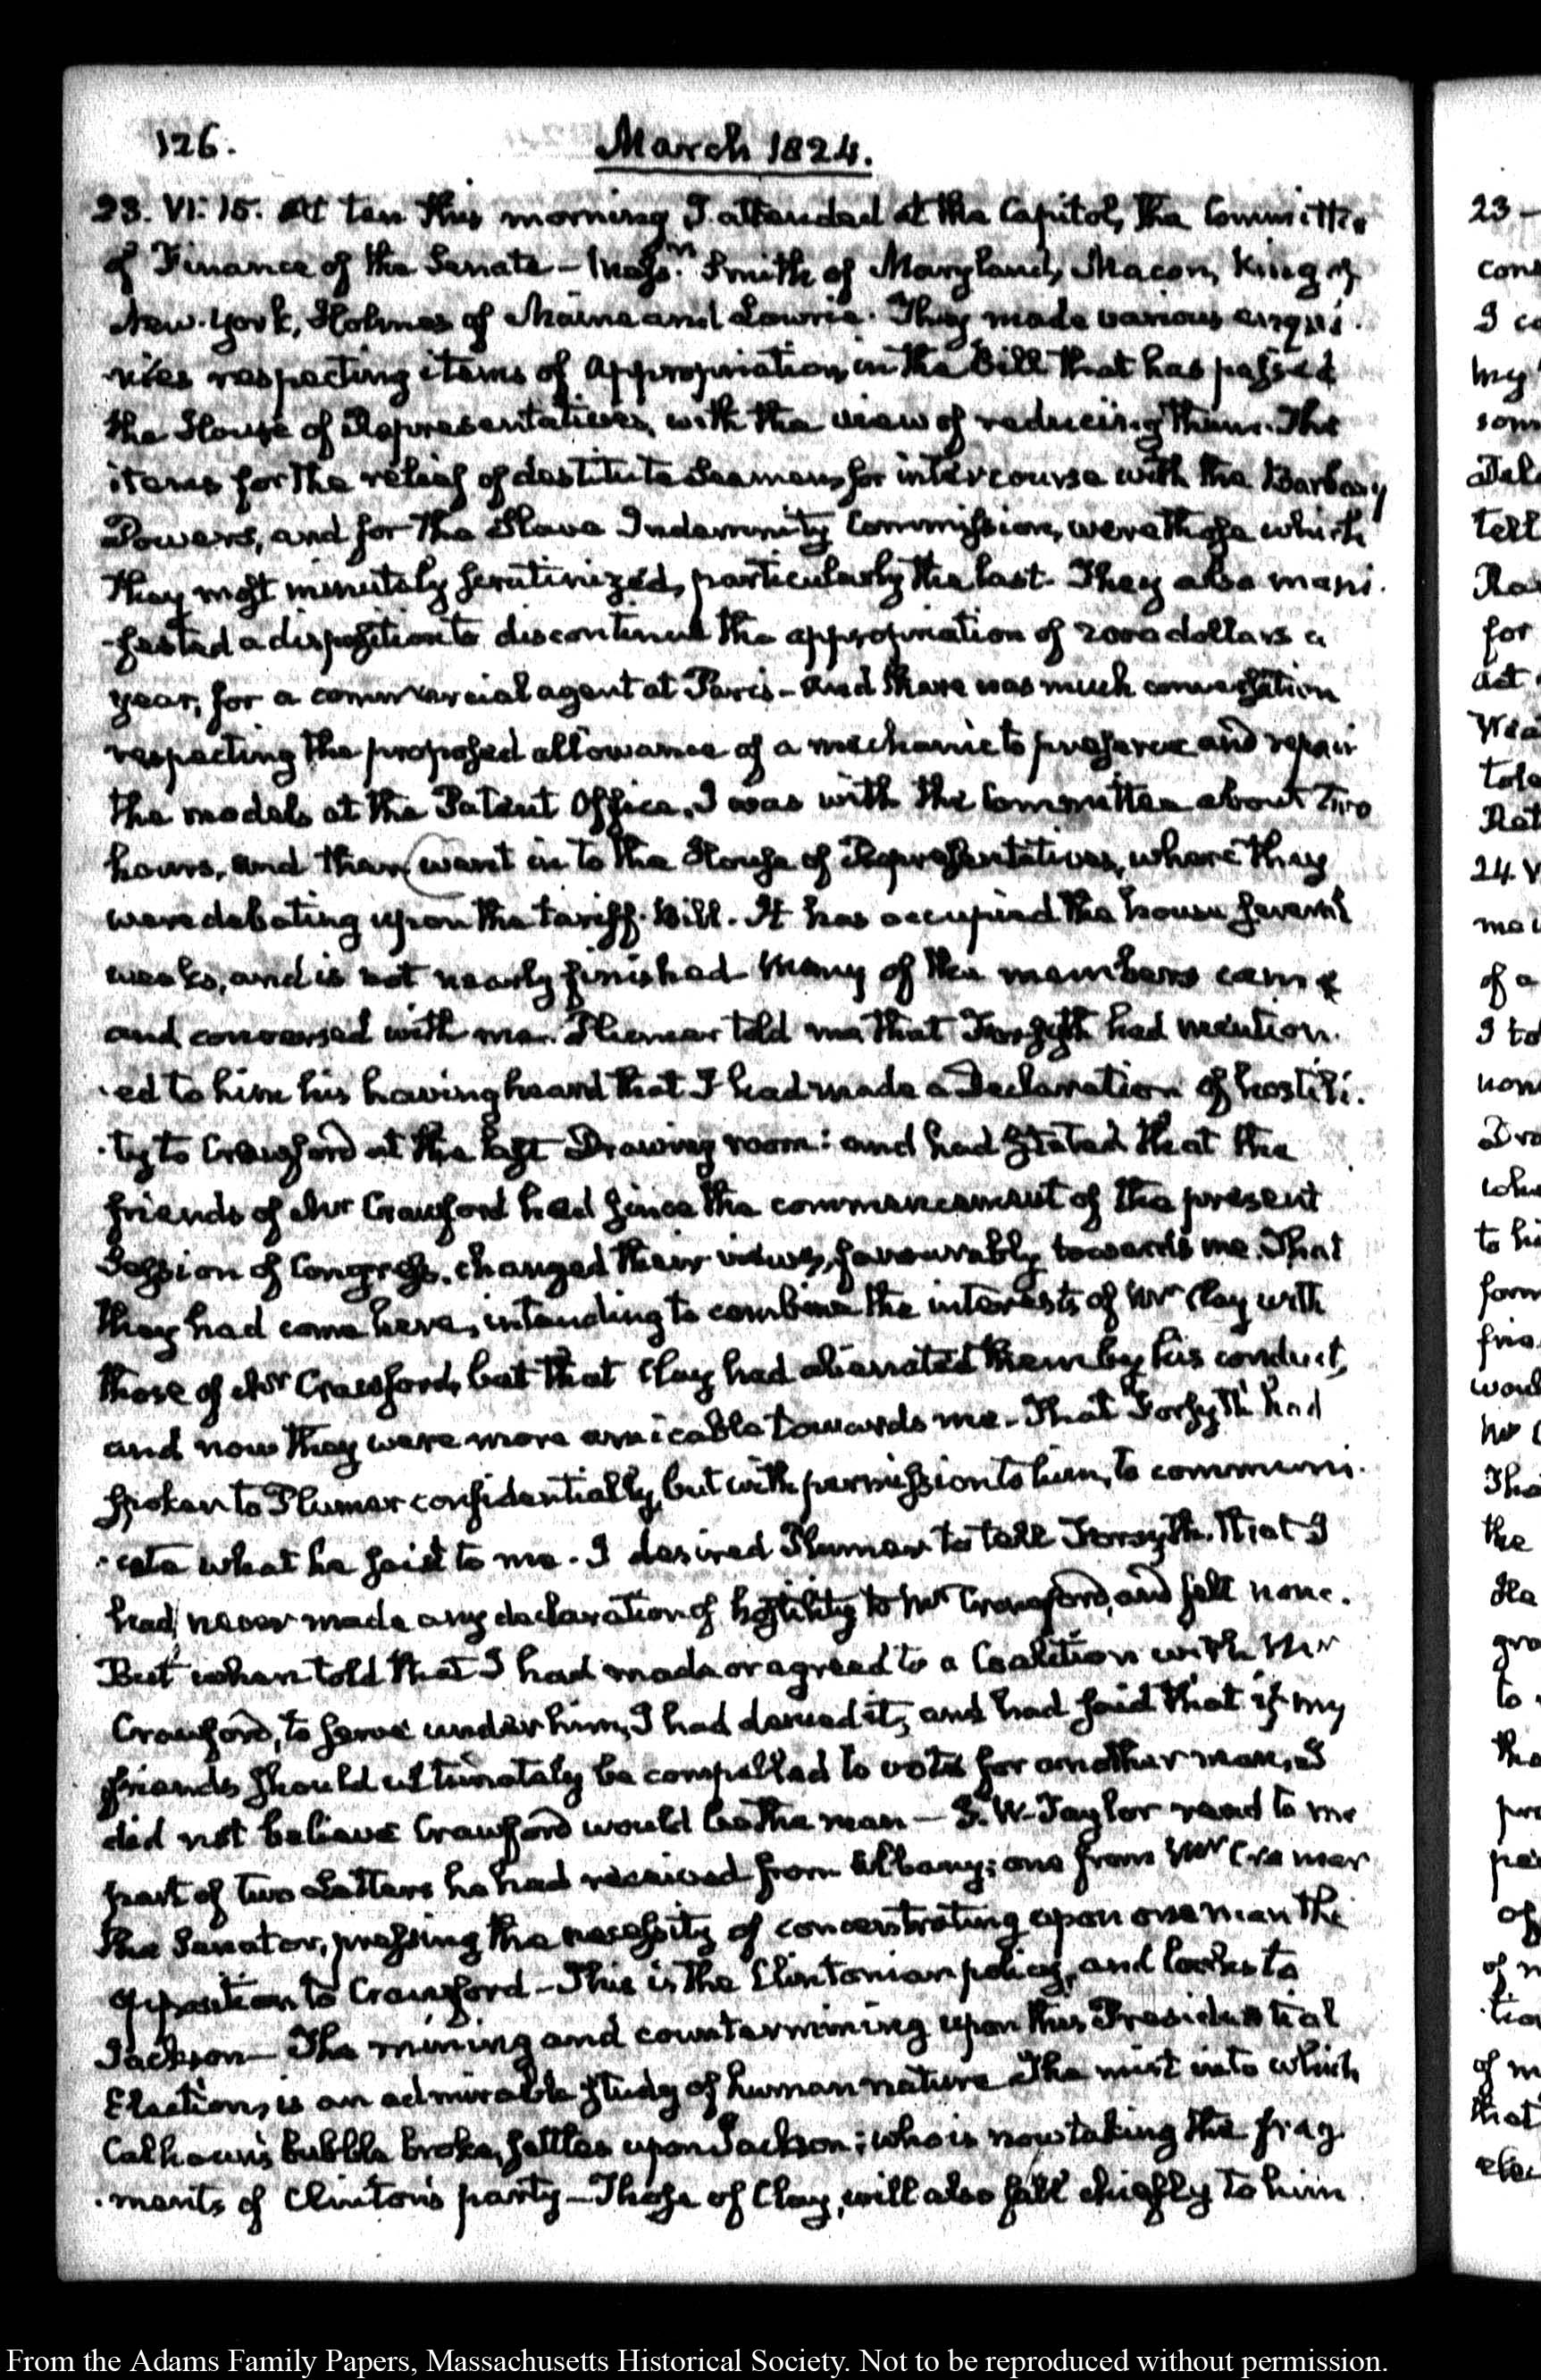 126.
March 1824.
23. VI: 15. At ten this morning I attended at the Capitol, the Committee
of Finance of the Senate – Messrs. Smith of Maryland, Macon, King of
New-York, Holmes of Maine and Lowrie. They made various enqui-
-ries respecting items of appropriation in the Bill that has passed
the House of Representatives, with the view of reducing them. The
items for the relief of destitute Seamen, for intercourse with the Barbary
Powers, and for the Slave Indemnity Commission, were those which
they most minutely scrutinized, particularly the last. They also mani-
-fested a disposition to discontinue the appropriation of 2000 dollars a
year, for a commercial agent at Paris – and there was much conversation
respecting the proposed allowance of a mechanic to preserve and repair
the models at the Patent Office. I was with the Committee about two
hours, and then went in to the House of Representatives, where they
were debating upon the tariff-bill. It has occupied the house several
weeks, and is not nearly finished. Many of the members came
and conversed with me. Plumer told me that Forsyth had mention-
-ed to him his having heard that I had made a Declaration of hostili-
-ty to Crawford at the last Drawing room: and had stated that the
friends of Mr Crawford had since the commencement of the present
Session of Congress, changed their views, favourably towards me. That
they had come here, intending to combine the interests of Mr Clay with
those of Mr Crawford, but that Clay had alienated them by his conduct,
and now they were more amicable towards me. That Forsyth had
spoken to Plumer confidentially, but with permission to him, to communi-
-cate what he said to me. I desired Plumer to tell Forsyth that I
had never made any declaration of hostility to Mr Crawford, and felt none.
But when told that I had made or agreed to a Coalition with Mr
Crawford, to serve under him, I had denied it, and had said that if my
friends should ultimately be compelled to vote for another man, I
did not believe Crawford would be the man – J. W. Taylor read to me
part of two Letters he had received from Albany; one from Mr Cramer
the Senator, pressing the necessity of concentrating upon one man the
opposition to Crawford – This is the Clintonian policy, and looks to
Jackson – The mining and countermining upon this Presidential
Election, is an admirable study of human nature. The mist into which
Calhoun's bubble broke, settles upon Jackson; who is now taking the frag-
-ments of Clinton's party – Those of Clay, will also fall chiefly to him
23 –
24
From the Adams Family Papers, Massachusetts Historical Society. Not to be reproduced without permission.